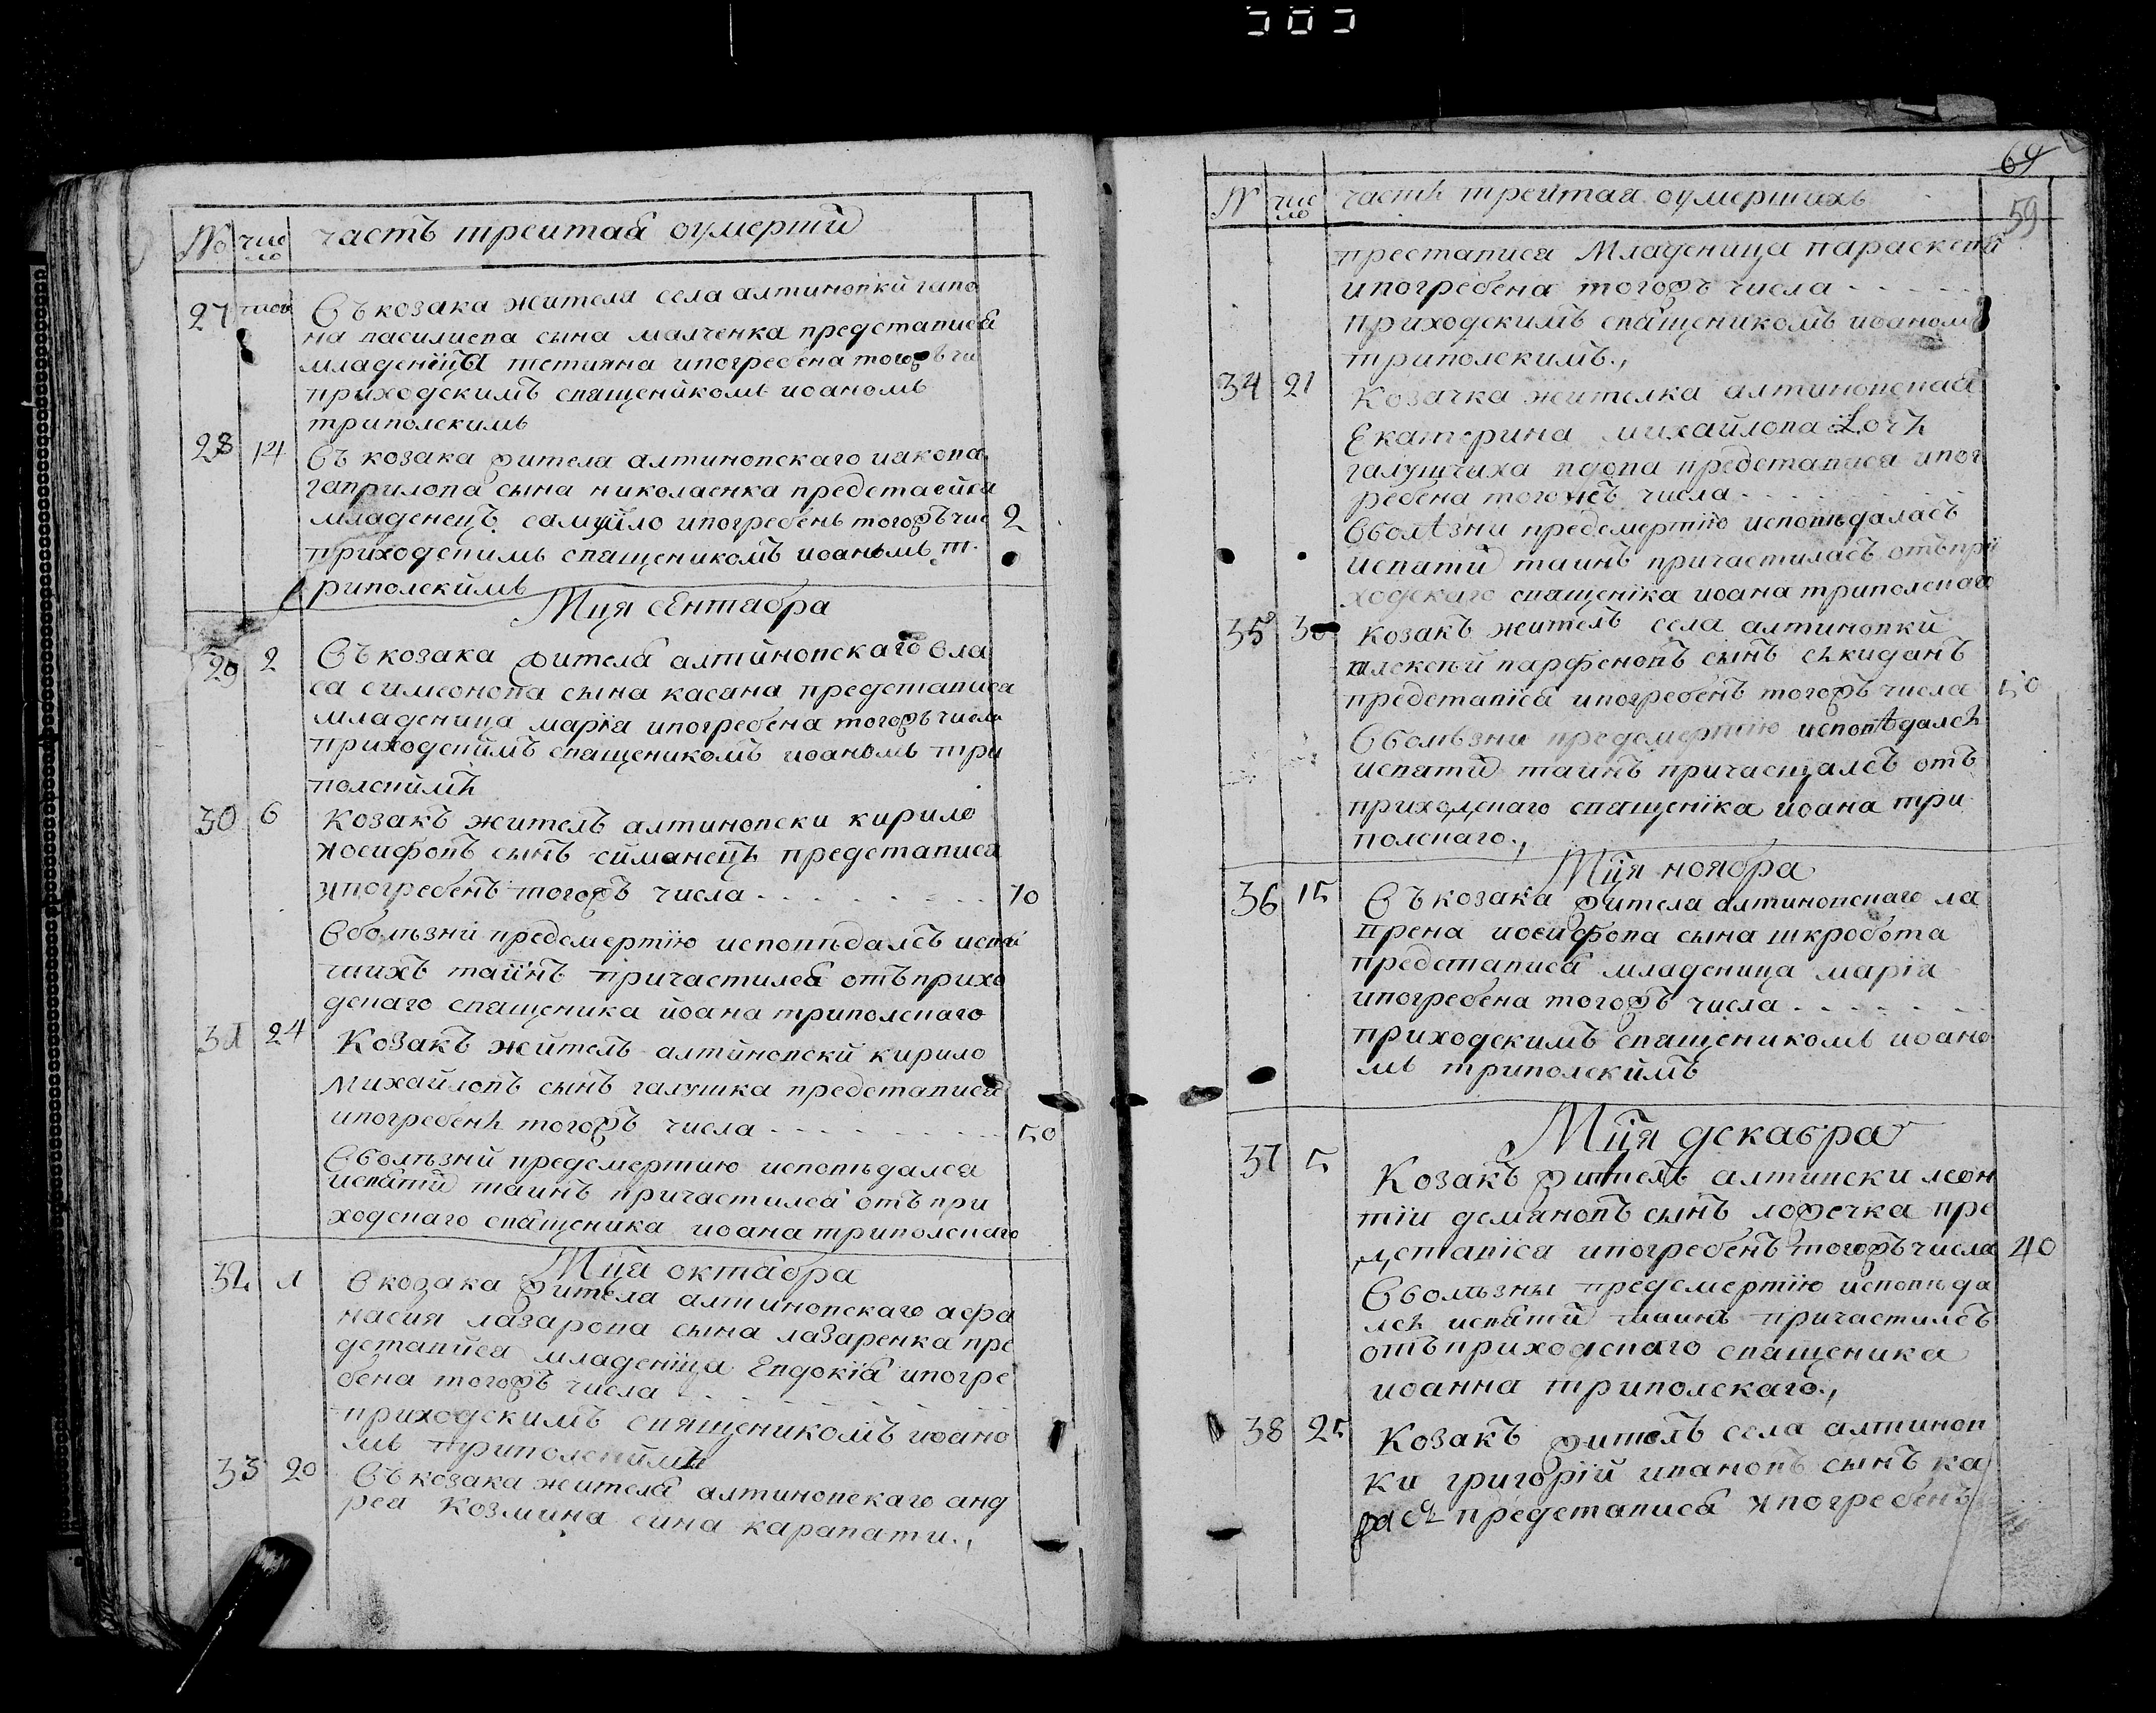 № число часть треитая оумерши
27 тоеж Въ козака жителя села алтиновкй гапо
на василиева сына малченка представися
младенѣца тетияна ипогребена тогожъ чи
приходскимъ священйкомъ иоаномъ
триполскимъ
28 14 Въ козака жителя алтиновскаго иакова
гаврилова сына николаенка представйся
младенецъ самуйло ипогребень тогожъ чис 2
приходскимъ священикомъ иоаномъ т.
риполскймъ
Мця сентабра
29 2 Въ козака жителя алтйновскаго вла
са симеонова сына касяна представися
младеница мариа ипогребена тогожъ числа
приходскимъ священикомъ иоаномъ три
полскимъ
30 6 Козакъ житель алтиновски кирило
иосифовъ сынъ симанецъ представися
ипогребенъ тогожъ числа - - - - - - - 10
Вболѣзнй предсмертїю исповѣдалсъ исвя
тихъ таинъ причастился отъ прихо
дскаго священика йоана триполскаго
31 24 Козакъ жйтель алтйновскй кирило
михайловъ сынъ галушка представися
ипогребень тогожъ числа - - - - - - - - - 50
Вболѣзнй предсмертию исповѣдался
исвятй таинъ причастился отъ при
ходскаго священика иоана триполскаго
Мця октабра
32 1 В козака жителя алтиновскаго афа
насия лазарова сына лазаренка пре
дставйся младенїца Евдокїа ипогре
бена тогожъ числа - - - - - -
приходскимъ священикомъ иоано
мъ триполскймъ
33 20 Въ козака жителя алтиновскаго анд
рея Козмина сина карапати.,
69
№ число часть треитая оумершихъ 59
преставися Младеница параскеви
ипогребена тогожъ числа - - - - -
приходскимъ священикомъ иоаномъ
триполскимъ.,
34 21 Козачка жителка алтиновская
Екатерина михайлова дочъ
галушчиха вдова представися ипог
ребена тогожъ числа - - - - - -
Вболѣзни предсмертїю исповѣдаласъ
исвятй таинъ причастиласъ отъ при
ходскаго священїка иоана триполскаго
35 30 Козакъ житель села алтиновки
алексѣй парфеновъ сынъ
представїся ипогребенъ тогожъ числа 50
Вболѣзни предсмертїю исповѣдалсъ
исвятй таинъ причащалсъ отъ
приходскаго священїка иоана три
полскаго.,
Мця ноябра
36 15 Въ козака жителя алтиновскаго ла
врена иосифова сына шкробота
представися младеница мариа
ипогребена тогожъ числа - - - - - -
приходскимъ священикомъ иоано
мъ триполскймъ
Мця декабра
37 5 Козакъ жителъ алтински леон
тїи демяновъ сынъ ложечка пре
дставїся ипогребенъ тогожъ числа 40
Вболѣзны предсмертїю исповѣда
лсъ исвятй таинъ причастилсъ
отъ приходскаго священика
иоанна триполскаго.,
38 25 Козакъ жителъ села алтинов
ки григорїй ивановъ сынъ ка
представися ипогребенъ